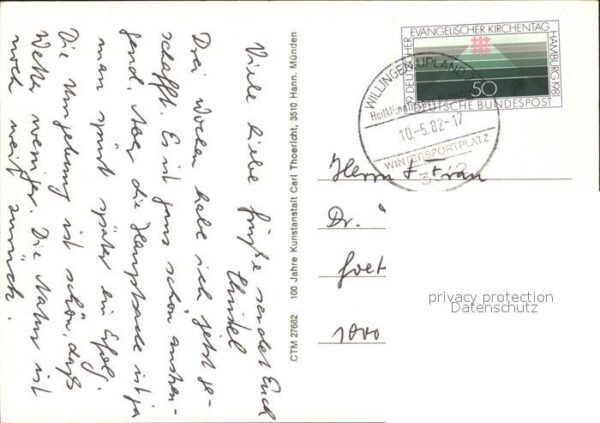 Drei Wochen habe ich jetzt ge-
schafft. Es ist ganz schön anstren-
gend. Aber die Hauptsache ist ja
man spürt später ein Erfolg.
Die Umgebung ist schön, das
Wetter weniger. Die Natur ist
noch weit zurück.
Viele liebe Grüße sendet Euch
Christel
100 Jahre Kunstanstalt Carl Thoericht, 3510 Hann. Münden
CTM 27682
19. DEUTSCHER EVANGELISCHER KIRCHENTAG HAMBURG 1981
50
DEUTSCHE BUNDESPOST
WILLINGEN, UPLAND
10.-5.82.-17
WINTERSPORTPLATZ
Herrn + Frau
Dr.
Goet
1000
privacy protection
Datenschutz